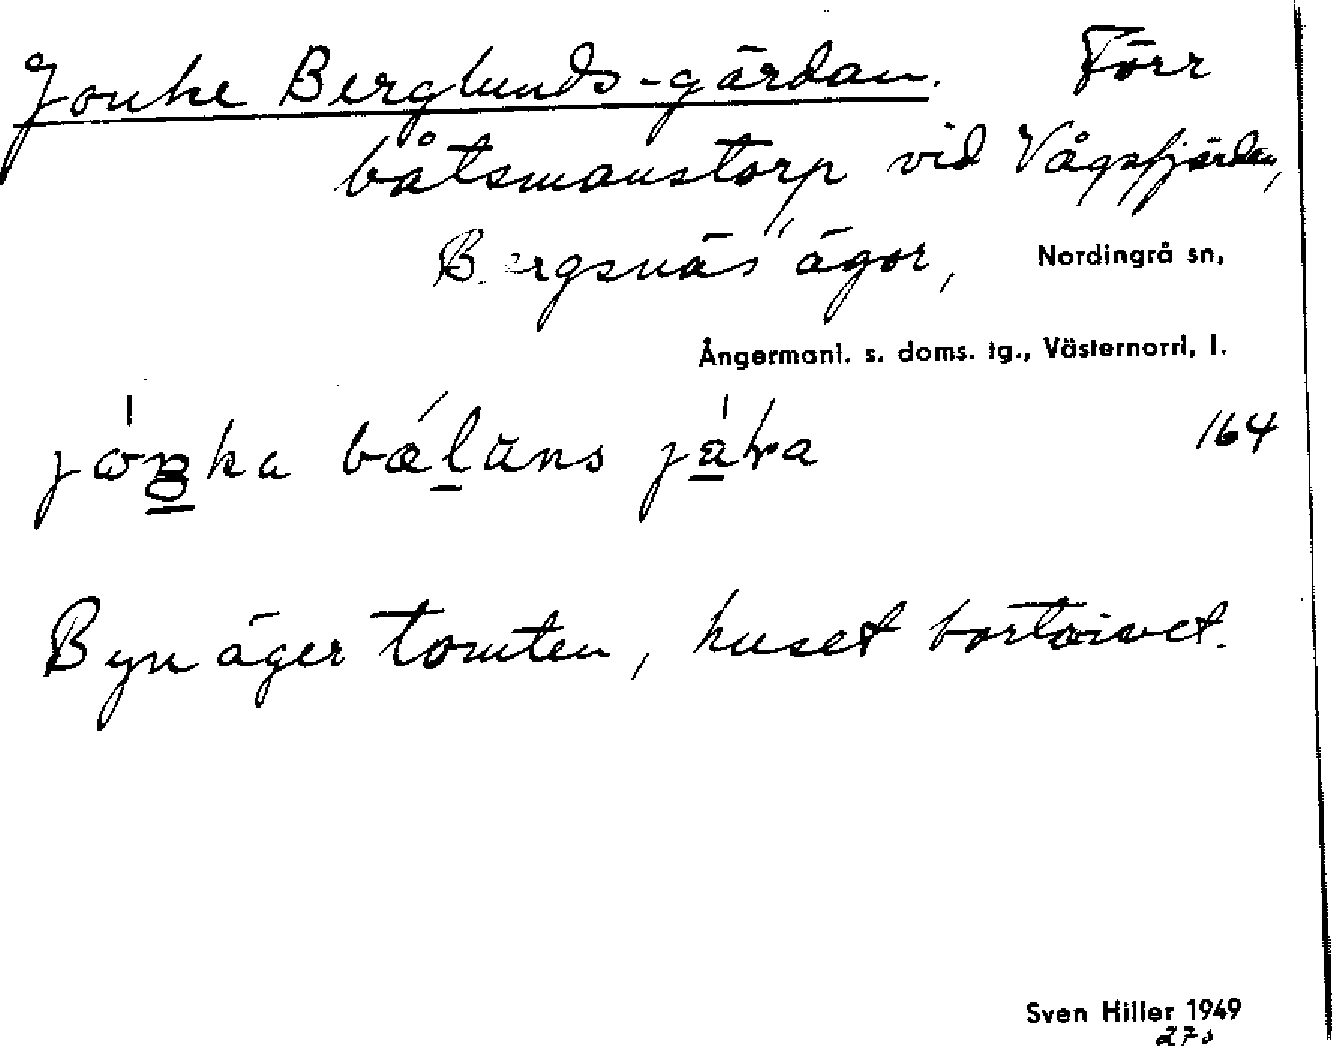 Jonke Berglunds-gärdan. Förr
båtsmanstorp vid Vågsfjärden,
Bergsnäs ägor, Nordingrå sn,
Ångermanl. s. doms. tg., Västernorrl. l.
164
Byn äger tomten, huset bortrivet.
Sven Hiller 1949